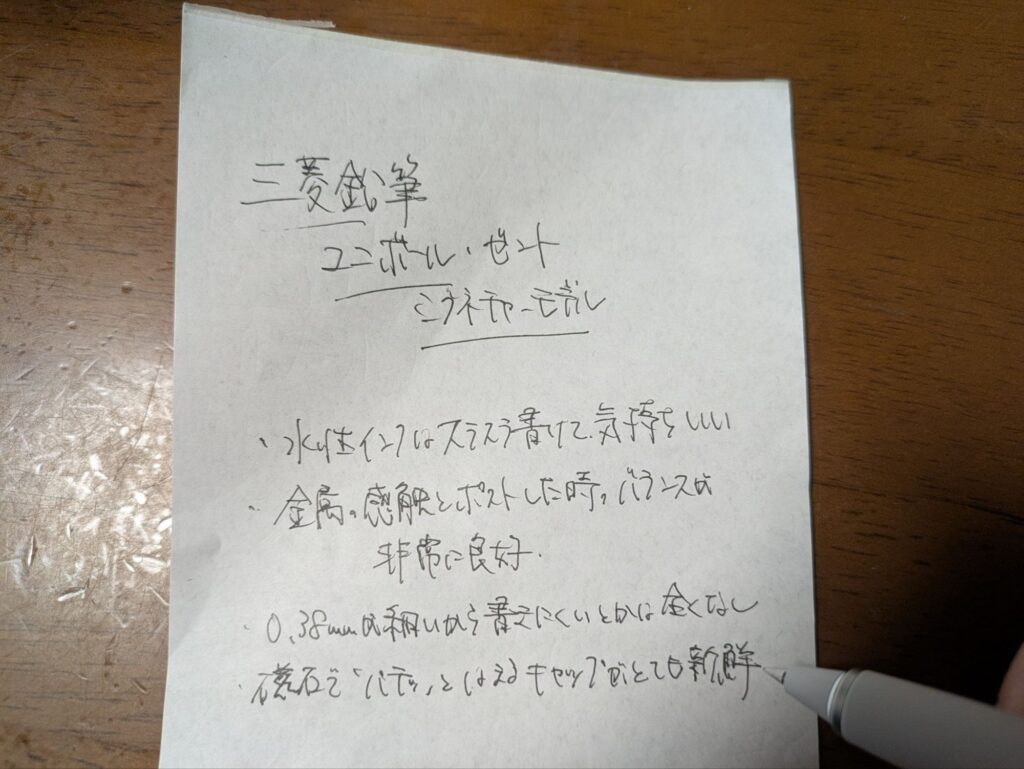 三菱鉛筆
ユニボール・ゼント
シグネチャーモデル
・水性インクはスラスラ書けて、気持ちいい
・金属の感触とポストした時のバランスは
非常に良好.
・0.38mmは細いから書きにくいとかは全くなし
・磁石で「パチッ」とはまるキャップがとても新鮮